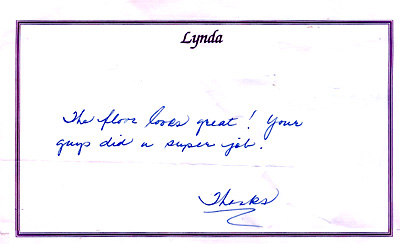 Lynda
The floor looks great! Your
guys did a super job.
Thanks